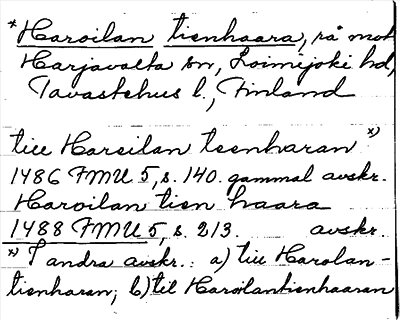 *Haroilan tienhaara, rå mot
Harjavalta sn, Loimijoki hd,
Tavastehus l., Finland
till Haroilan teenharan *)
1486 FMU 5, s. 140. gammal avskr.
Haroilan tien haara
1488 FMU 5, s. 213. avskr.
*) I andra avskr.: a) till Harolan-
tienharan; b) til Haroilantienhaaran